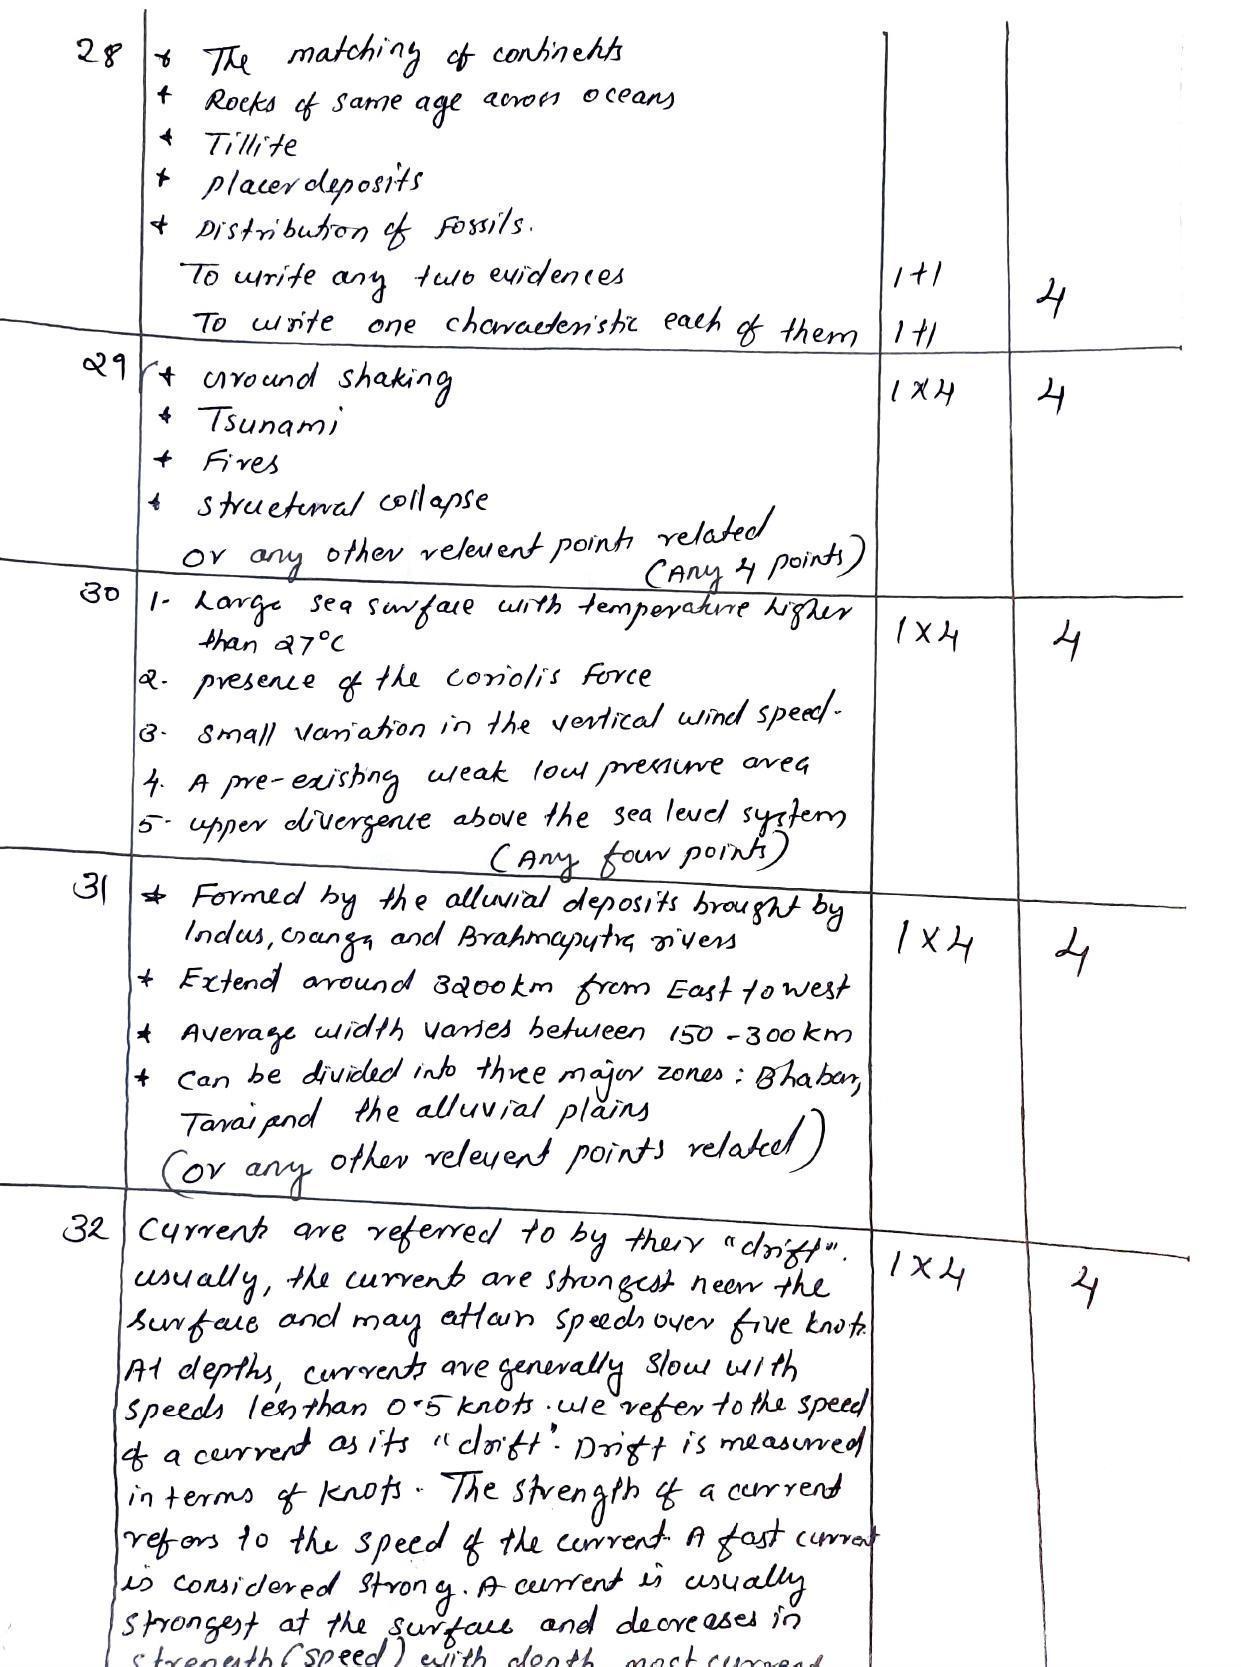 28 * The matching of continents
* Rocks of same age across oceans
* Tillite
* placer deposits
* Distribution of Fossils.
To write any two evidences 1+1
4
To write one characteristic each of them 1+1
29 * Ground shaking 1x4 4
* Tsunami
* Fires
* structural collapse
or any other relevent points related
(Any 4 points)
30 1. Large sea surface with temperature higher
than 27°C 1x4 4
2. presence of the coriolis Force
3. small variation in the vertical wind speed.
4. A pre-existing weak low pressure area
5. upper divergence above the sea level system
(Any four points)
31 * Formed by the alluvial deposits brought by
Indus, Ganga and Brahmaputra rivers 1x4 4
* Extend around 3200km from East to west
* Average width varies between 150-300km
* Can be divided into three major zones: Bhabar,
Tarai and the alluvial plains
(or any other relevent points related)
32 Currents are referred to by their "drift".
usually, the currents are strongest near the 1x4 4
surface and may attain speeds over five knots.
At depths, currents are generally slow with
speeds less than 0.5 knots. we refer to the speed
of a current as its "drift". Drift is measured
in terms of knots. The strength of a current
refers to the speed of the current. A fast current
is considered strong. A current is usually
strongest at the surface and decreases in
strength (speed) with depth most current